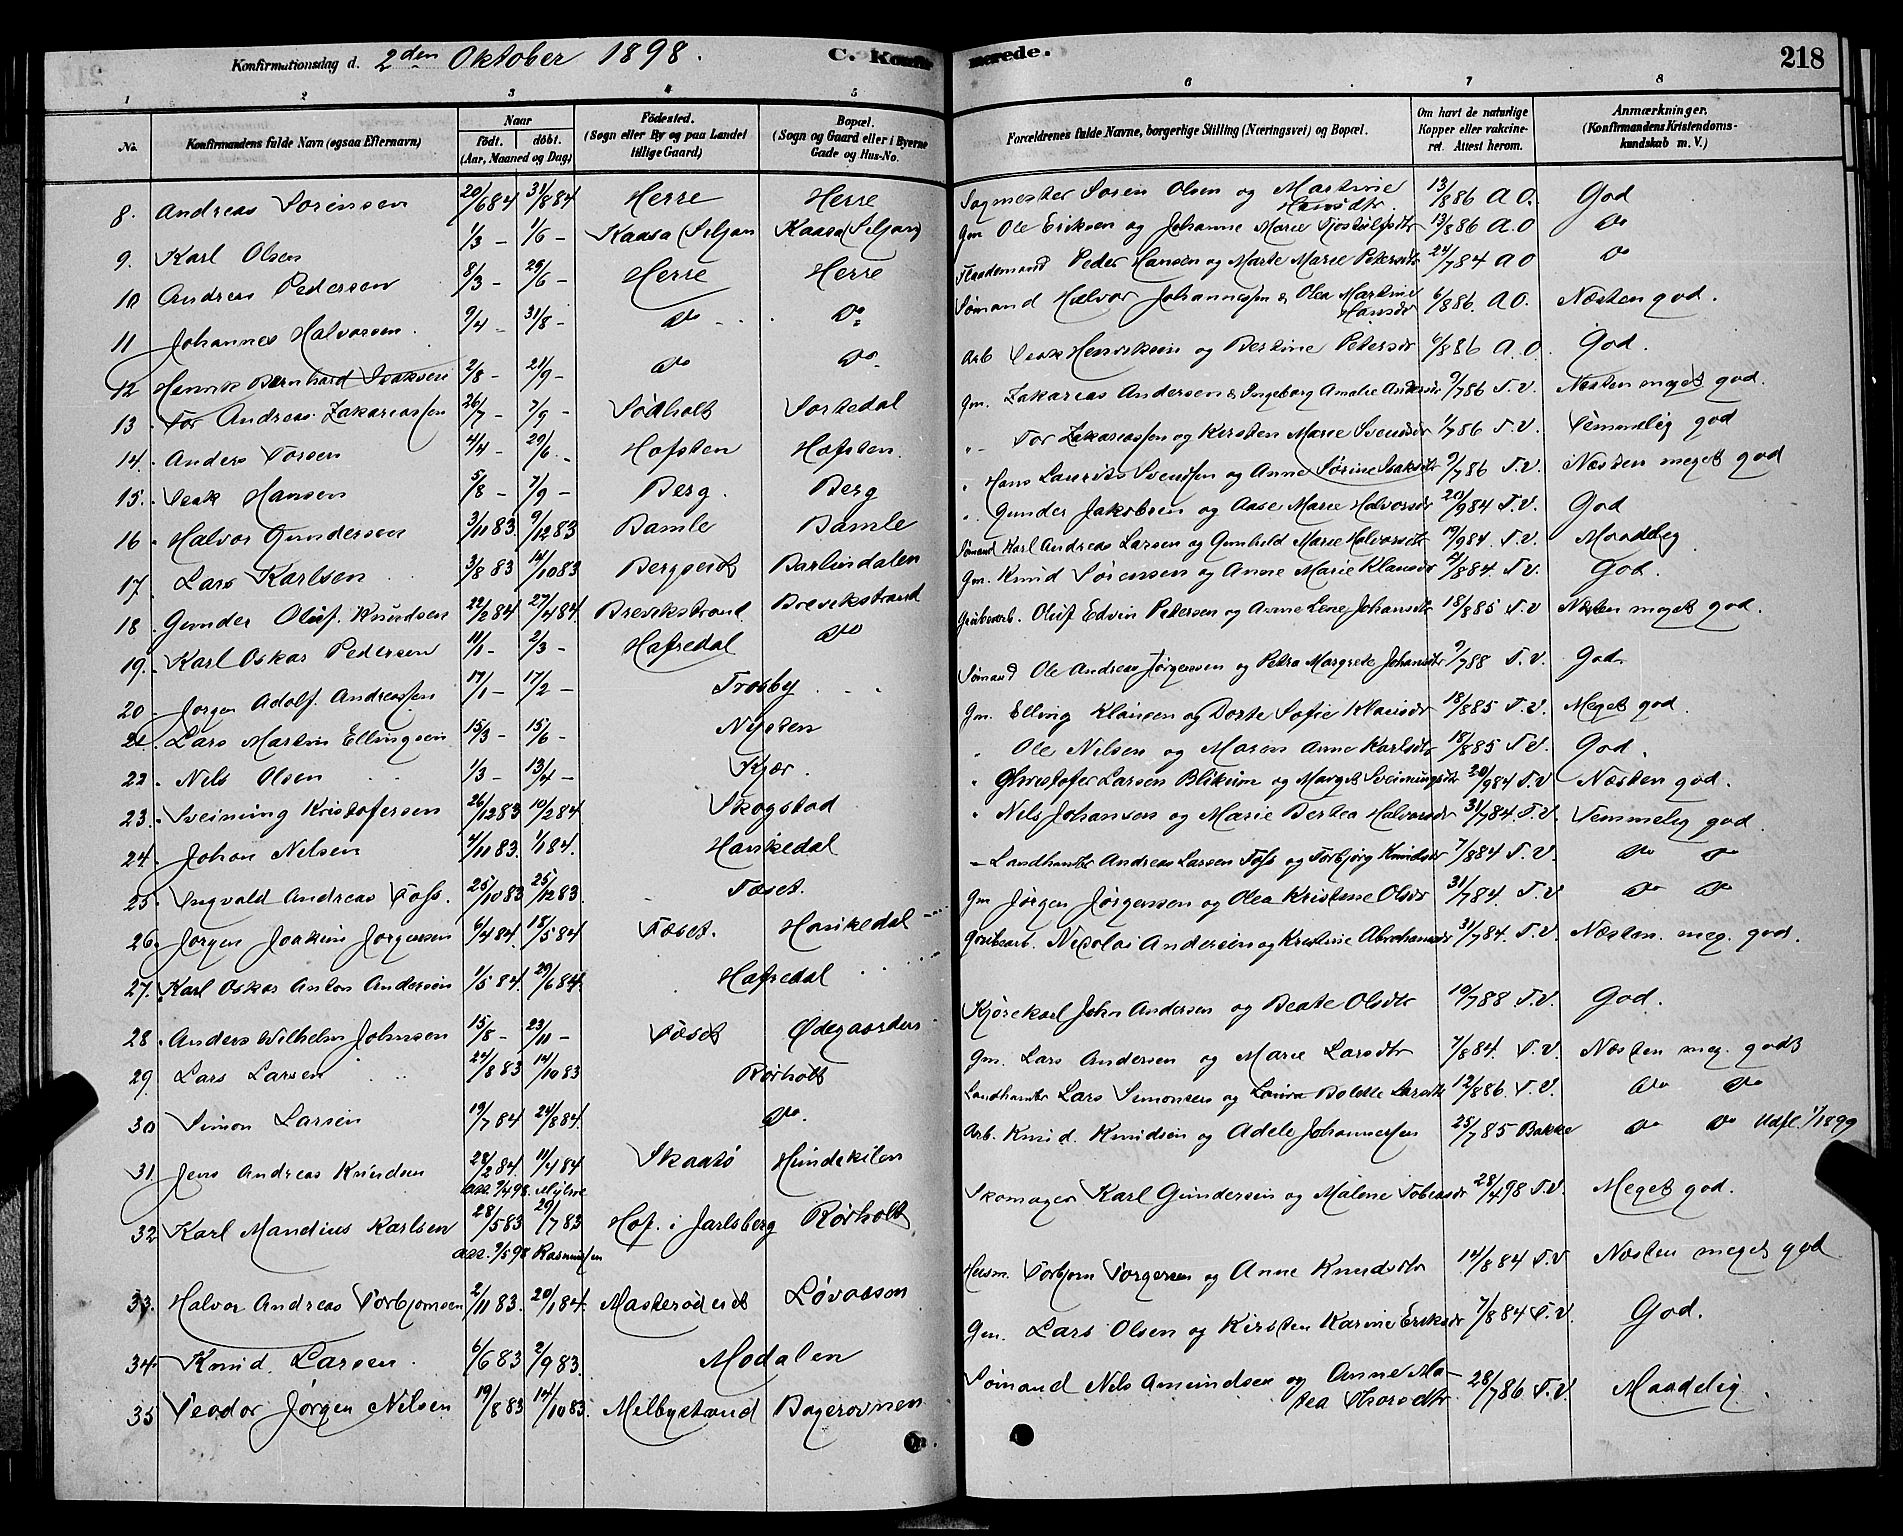 Konfirmationsdag d. 2den Oktober 1898. C. Konfir merede. 218
1 2 3 4 5 6 7 8
No. Konfirmandens fulde Navn (ogsaa Efternavn) Naar født. døbt. (Aar, Maaned og Dag) Födested. (Sogn eller By og paa Landet tillige Gaard) Bopæl. (Sogn og Gaard eller i Byerne Gade og Hus-No. Forældrenes fulde Navne, borgerlige Stilling (Næringsvei) og Bopæl. Om havt de naturlige Kopper eller vakcineret. Attest herom. Anmærkninger. (Konfirmandens Kristendomskundskab m. V.)
8. Andreas Sørensen 20/6 84 31/8 84 Herre Herre Sagmester Søren Olsen og Martine Hansdtr 13/8 86 A O. God
9. Karl Olsen 1/3 - 1/6 - Kaasa (Siljan Kaasa (Siljan) Gm Ole Eriksen og Johanne Marie Tjostolfsdtr 13/8 86 A.O do
10 Andreas Pedersen 8/3 - 29/6 - Herre Herre Flaademand Peder Hansen og Marte Marie Petersdtr 24/7 84 A O do
11 Johannes Halvorsen. 9/4 - 31/8 - do do Sømand Halvor Johannessen & Olea Martine Hansdtr 6/8 86. A O. Næsten god.
12 Henrik Bernhard Isaksen 2/8 - 21/9 - do do Arb Isak Henriksen og Bertine Petersdr 6/8 86 A.O. God.
13 Tor Andreas Zakariassen 26/7 - 7/9 - Sødholt Sortedal Gm. Zakarias Andersen & Ingeborg Amalie Andersdr 9/7 86 T.V. Næsten meget god.
14. Anders Torsen 4/4 - 29/6 - Hofsten Hofsten. " Tor Zakariassen og Kirsten Marie Svendsdr 1/7 86 T.V. Temmelig god
15. Isak Hansen 5/8 - 7/9 - Berg. Berg " Hans Laurits Svendsen og Anne Sørine Isaksdtr 9/7 86 T.V. Næsten meget god
16 Halvor Gundersen 3/11 83 9/12 83 Bamle Bamle " Gunder Jakobsen og Aase Marie Halvorsdr 20/9 84 T.V. God
17. Lars Karlsen 3/8 83 14/10 83 Bergseid Barlindalen Sømand Karl Andreas Larsen og Gunhild Marie Halvorsdtr 19/9 84. T.V. Maadelig
18. Gunder Oluf Knudsen 22/2 84 27/4 84 Brevikstrand Brevikstrand Gm. Knud Sørensen og Anne Marie Klausdr /8 84. T.V. God.
19. Karl Oskar Pedersen 11/1 - 2/3 - Hafredal do Grubearb. Oluf Edvin Petersen og Anne Lene Johansdtr 18/8 85 T.V Næsten meget god.
20 Jørgen Adolf Andreassen 17/1 - 17/2 - Trosby Sømand Ole Andreas Jørgensen og Petra Margrete Johansdtr 9/7 88 T.V. God.
21 Lars Martin Ellingsen 15/3 - 15/6 - Nysten Gm. Elling Klausen og Dorte Sofie Klausdr 18/8 85 T.V. Meget god.
22. Nils Olsen 1/3 - 13/4 - Kjær. " Ole Nilsen og Maren Anne Karlsdtr 18/8 85 T.V. God.
23. Sveinung Kristofersen 26/12 83 10/2 84 Skogstad " Christofer Larsen Blikum og Marget Sveinungsdtr 20/9 84 T.V Næsten god.
24. Johan Nilsen 4/11 83. 1/1 84. Hankedal " Nils Johansen og Marie Bertea Halvorsdr 31/7 84. T.V. Temmelig god.
25. Ingvald Andreas Foss. 25/10 83 25/12 83. Faset. - Landhandler Andreas Larsen Foss og Torbjørg Knudsdr 7/8 84 T.V. do do
26. Jørgen Joakim Jørgensen 6/4 84. 18/5 84 Faset. Hankedal Gm Jørgen Jørgensen og Olea Kristine Olsdr 31/7 84. T.V do do
27. Karl Oskar Anton Andersen 1/5 84. 29/6 84. Hafredal Grubearb. Nicolai Andersen og Kristine Abrahamsdr 31/7 84. T.V. Næsten. meg. god.
28. Anders Wilhelm Johnsen 15/8 - 23/11 - Faset Ødegaarden Kjørekarl John Andersen og Beate Olsdtr 19/7 88 T.V. God.
29. Lars Larsen 24/8 83 14/10 83 Rørholt Gm. Lars Andersen og Marie Larsdtr 7/8 84. T.V. Næsten meg. godt
30 Simon Larsen 19/7 84 24/8 84. do. Landhandler Lars Simonsen og Laura Bolette Larsdtr 12/8 86. T.V. do do
31 Jens Andreas Knudsen 28/2 84. 11/4 84 Skaatø Hundekilen Arb. Knud Knudsen og Adele Johannessen 25/7 85 Bakke do do Udfl. 1/1899
att. 9/4 98. Myhre
32 Karl Mandius Karlsen 28/5 83 29/7 83 Hof. i Jarlsberg Rørholt Skomager Karl Gundersen og Malene Tobiasdr 28/4 98 T.V. Meget god.
att. 9/5 98 Rasmussen
33. Halvor Andreas Torbjørnsen 2/11 83. 20/1 84. Masterødereid Løvaasen Husm. Torbjørn Torgersen og Anne Knudsdtr 14/8 84 T.V Næsten meget god
34. Knud Larsen. 6/6 83 2/9 83. Modalen Gm. Lars Olsen og Kirsten Karine Eriksdr 7/8 84 T.V. God.
35 Teodor Jørgen Nilsen 19/8 83 14/10 83. Melbystrand Bagerovnen Sømand Nils Amundsen og Anne Matea Thorsdtr 28/7 86 T.V. Maadelig.